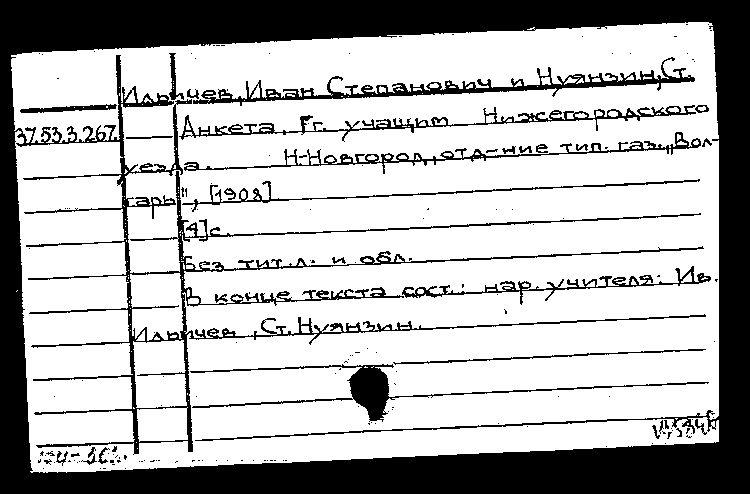 Ильичев, Иван Степанович и Нуянзин, Ст.
37.53.3.267. Анкета. Гг. учащим Нижегородского
уезда. Н-Новгород, отд-ние тип. газ. „Вол-
гарь", [1908]
[4]с.
Без тит. л. и обл.
В конце текста сост.: нар. учителя: Ив.
Ильичев, Ст. Нуянзин.